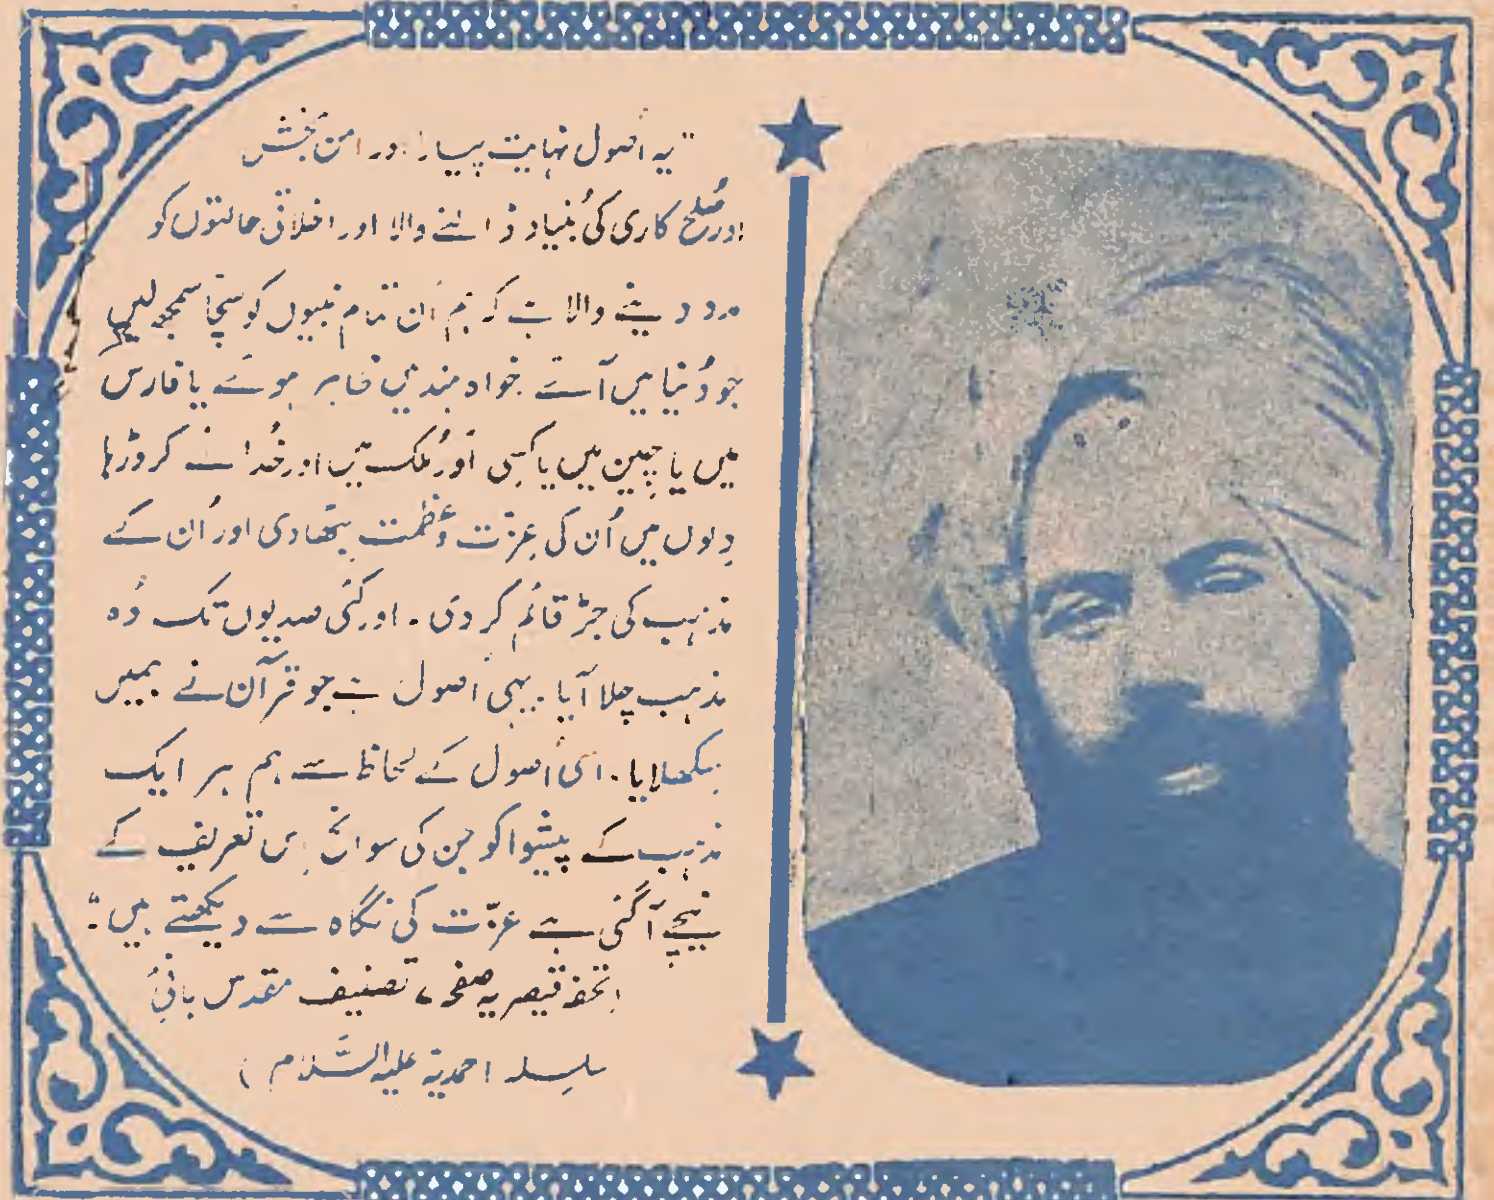 "یہ اُصول نہایت پیارا اور امن بخش
اور صُلح کاری کی بُنیاد ڈالنے والا اور اخلاقی حالتوں کو
مدد دینے والا ہے کہ ہم اُن تمام نبیوں کو سچّا سمجھ لیں
جو دُنیا میں آئے خواہ ہند میں ظاہر ہوئے یا فارس
میں یا چین میں یا کسی اَور مُلک میں اور خُدا نے کروڑہا
دِلوں میں اُن کی عِزّت و عظمت بِٹھا دی اور اُن کے
مذہب کی جڑ قائم کر دی۔ اور کئی صدیوں تک وُہ
مذہب چلا آیا۔ یہی اُصول ہے جو قرآن نے ہمیں
سِکھلایا۔ اسی اُصول کے لحاظ سے ہم ہر ایک
مذہب کے پیشوا کو جن کی سوانح اِس تعریف کے
نیچے آ گئی ہے عزّت کی نگاہ سے دیکھتے ہیں۔"
(تحفہ قیصریہ صفحہ ۷ تصنیف مقدس بانیٔ
سِلسلہ احمدیّہ علیہ السَّلام)